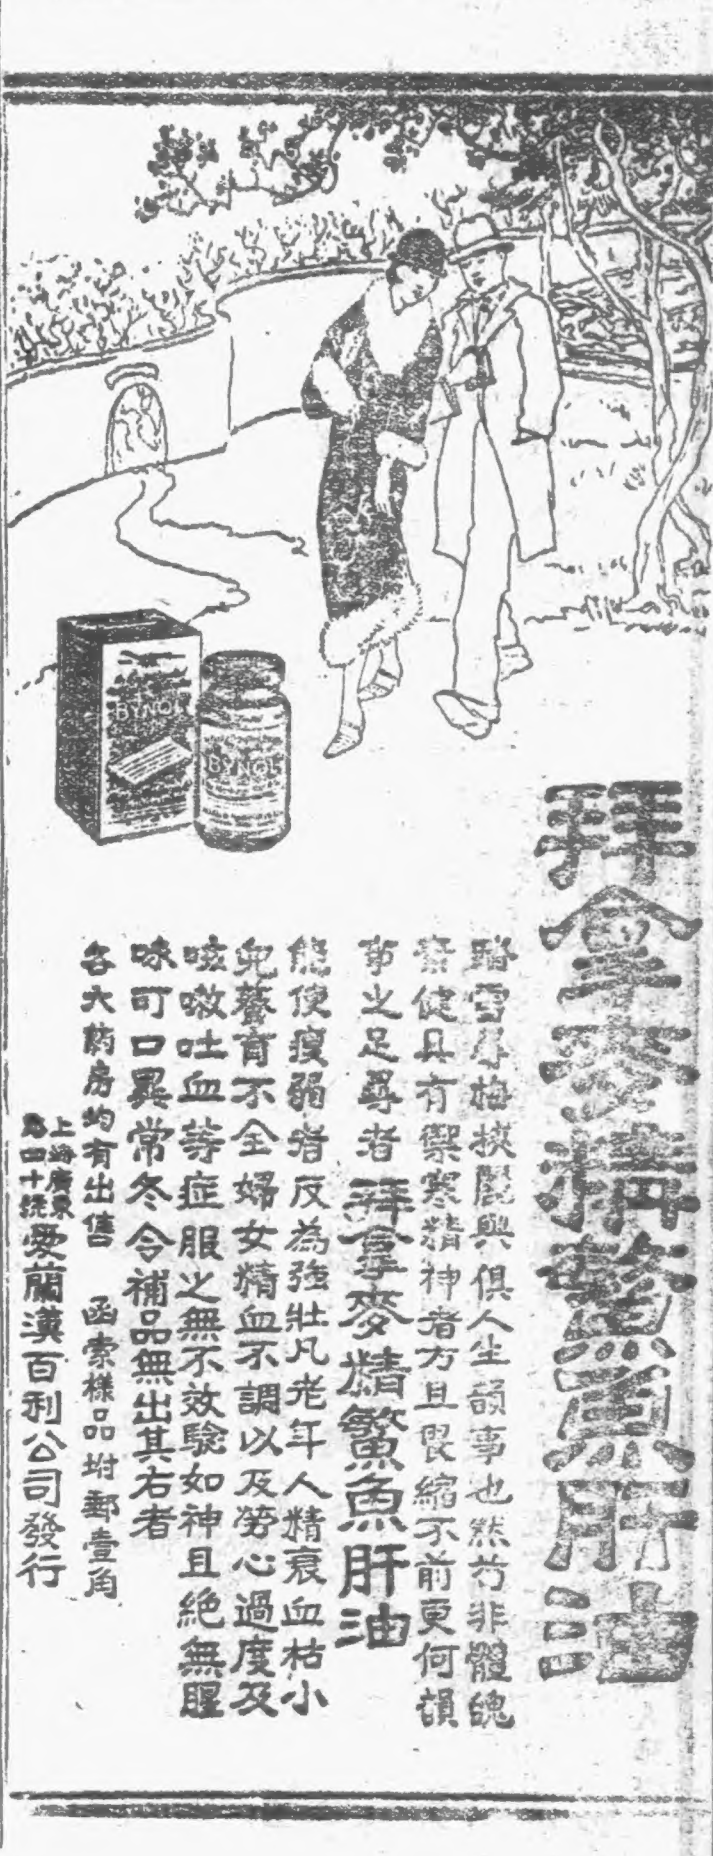 拜拿麥精鰵魚肝油
踏雪尋梅挾麗與俱人生韻事也然苟非體魄
素健具有禦寒精神者方且畏縮不前更何韻
事之足尋者拜拿麥精鰵魚肝油
能使瘦弱者反為強壯凡老年人精衰血枯小
兒發育不全婦女精血不調以及勞心過度及
咳嗽吐血等症服之無不效驗如神且絕無腥
味可口異常冬令補品無出其右者
各大葯房均有出售 函索樣品坿郵壹角
上海廣東
路四十號
愛蘭漢百利公司發行
BYNOL
BYNOL